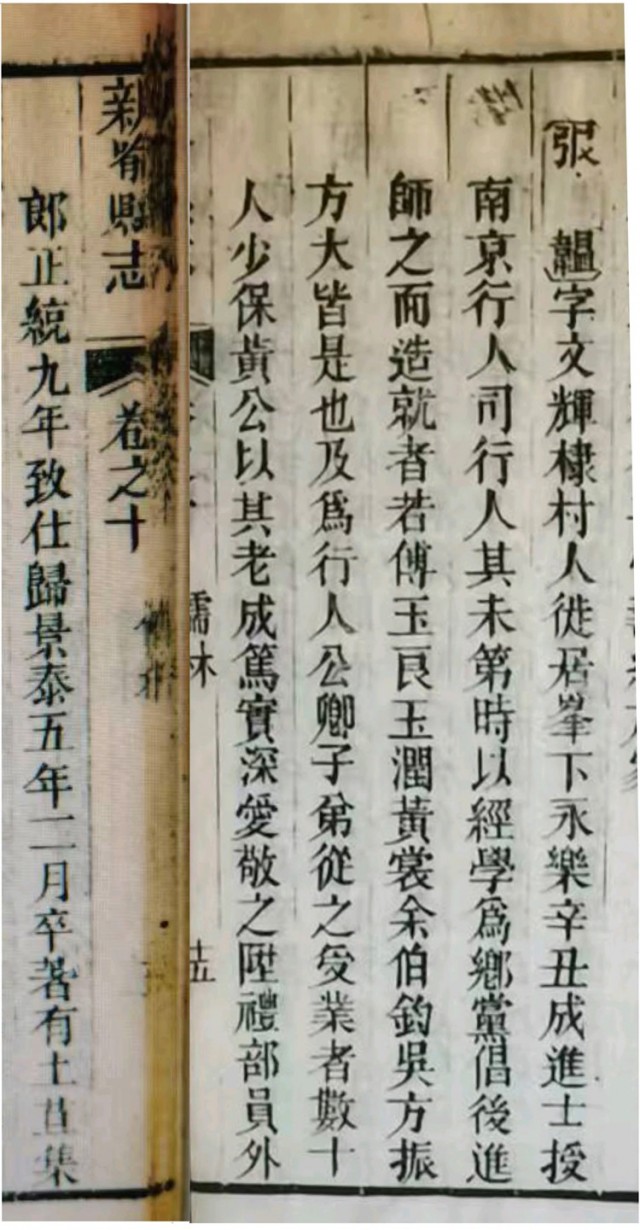 張 韞字文輝棣村人徙居峯下永樂辛丑成進士授
南京行人司行人其未第時以經學爲鄉黨倡後進
師之而造就者若傅玉良玉潤黃裳余伯鈞吳方振
方大皆是也及爲行人公卿子弟從之受業者數十
人少保黃公以其老成篤實深愛敬之陞禮部員外
儒林
十五
新喻縣志 卷之十
郎正統九年致仕歸景泰五年二月卒著有土苴集